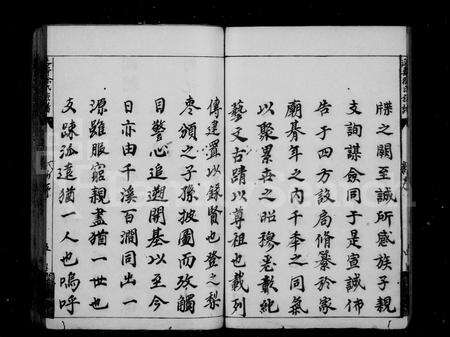 牒之闕至誠所感族子親
支詢謀僉同于是宣誠佈
告于四方設局脩纂於家
廟胥年之內千季之同氣
以聚累世之昭穆悉彰純
藝文古蹟以尊祖也載列
傳建置以錄賢也登之梨
棗頒之子孫披圖而攷觸
目警心追遡開基以至今
日亦由千溪百澗同出一
源雖服窮親盡猶一世也
支踈派遠猶一人也嗚呼